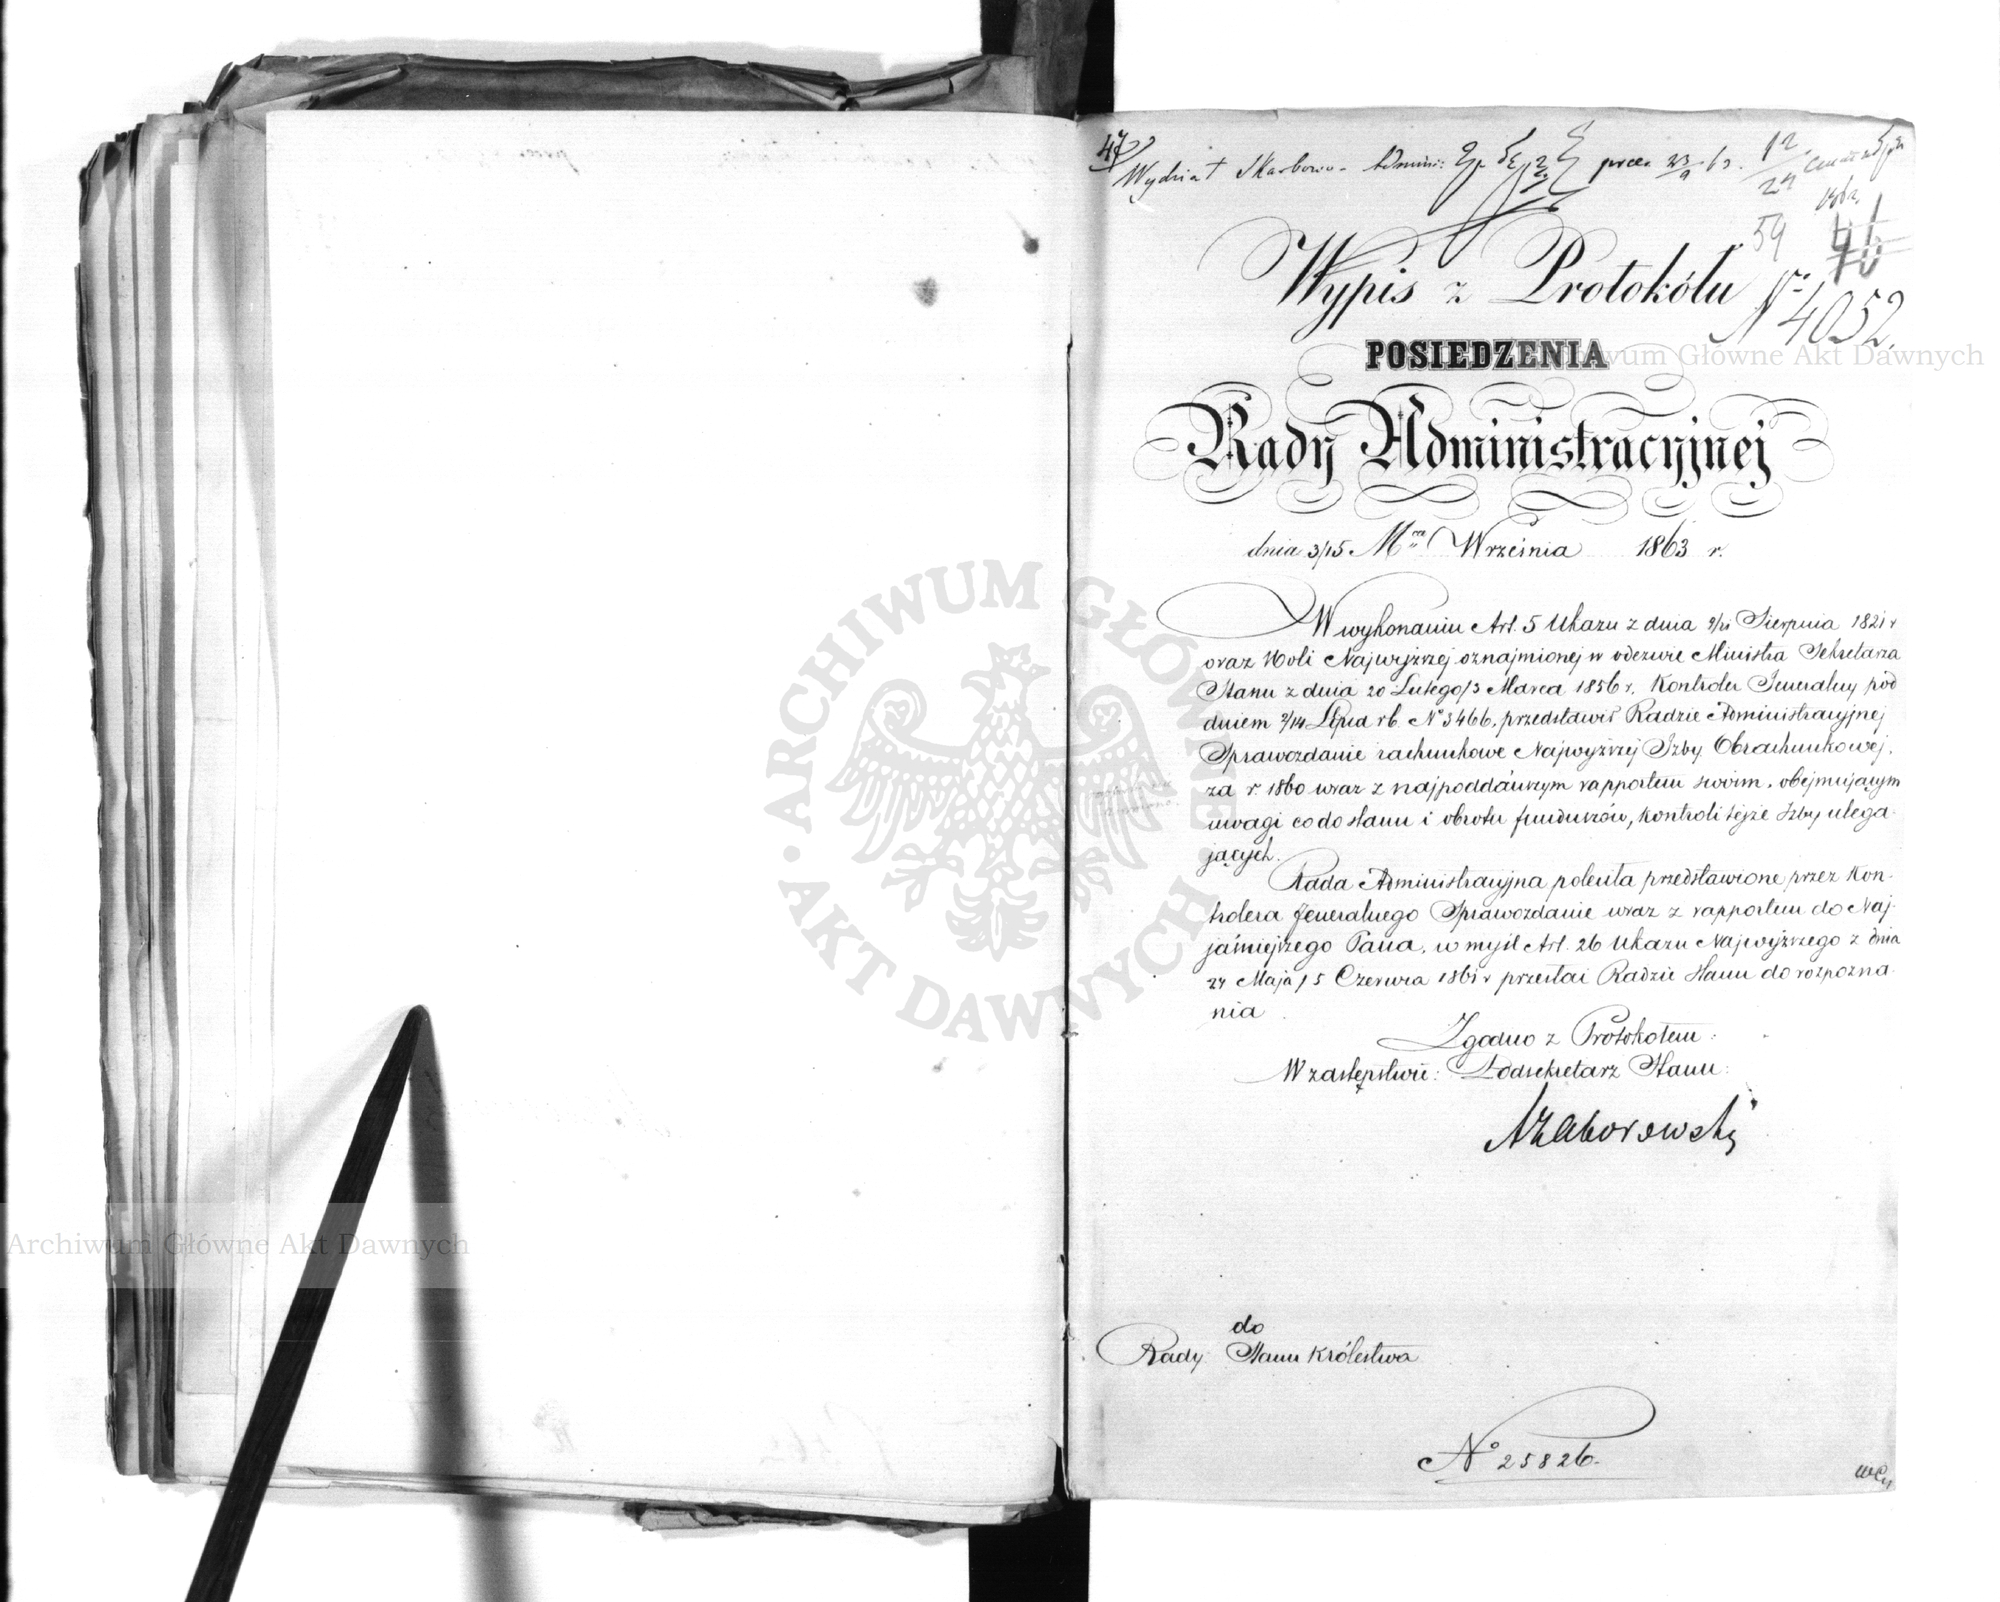 47
Wydział Skarbowo-Admini:
59 46
Wypis z Protokółu
Nr 4052.
POSIEDZENIA
Rady Administracyjnej
dnia 3/15 Mca Września 1863 r.
W wykonaniu Art. 5 Ukazu z dnia 9/21 Sierpnia 1821 r
oraz Woli Najwyższej oznajmionej w odezwie Ministra Sekretarza
Stanu z dnia 20 Lutego/3 Marca 1856 r. Kontroler Jeneralny pod
dniem 2/14 Lipca rb. No 3466, przedstawił Radzie Administracyjnej
Sprawozdanie rachunkowe Najwyższej Izby Obrachunkowej,
za r. 1860 wraz z najpoddańszym rapportem swoim, obejmującym
uwagi co do stanu i obrotu funduszów, kontroli tejże Izby ulega-
jących.
Rada Administracyjna poleciła przedstawione przez Kon-
trolera Jeneralnego Sprawozdanie wraz z rapportem do Naj-
jaśniejszego Pana, w myśl Art. 26 Ukazu Najwyższego z dnia
24 Maja/5 Czerwca 1861 r przesłać Radzie Stanu do rozpozna-
nia
Zgodno z Protokołem:
W zastępstwie: Podsekretarz Stanu:
AZaborowski
do
Rady Stanu Królestwa
No 25826.
Archiwum Główne Akt Dawnych
Archiwum Główne Akt Dawnych
· ARCHIWUM GŁÓWNE · AKT DAWNYCH